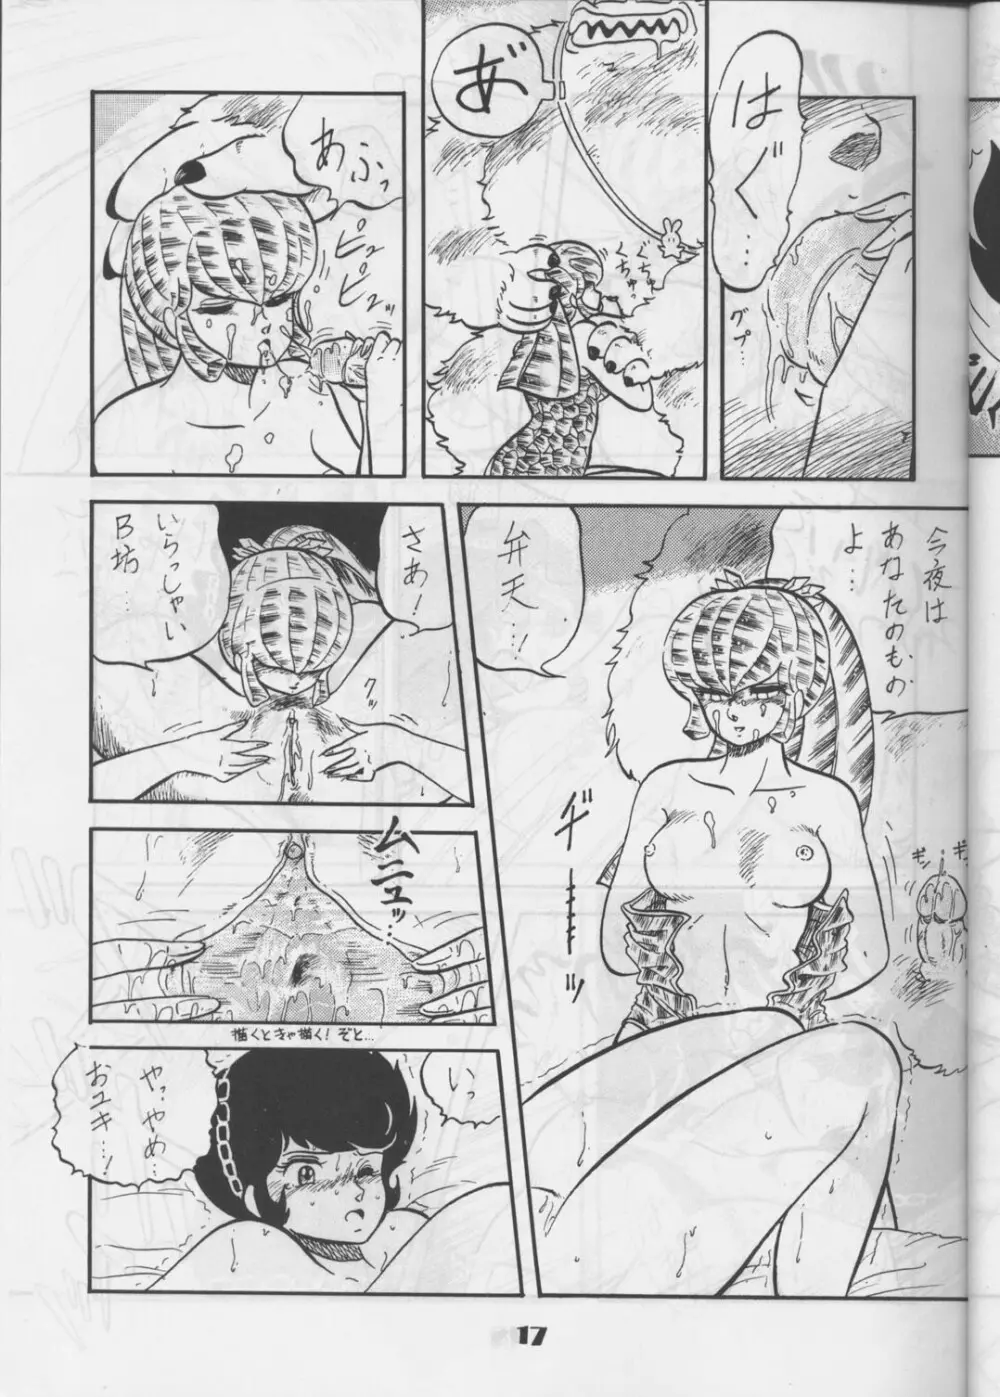 はぐ…
グプ…
あ゛
くちゅくちゅ
あふっ
ピュピピュッ
今夜は
あなたのもの
よ…
弁天…!
ギシーーッ
ギンギン
さあ!
いらっしゃい
B坊…
クッ
ムニュッ…
描くときゃ描く!ぞと…
いっ
やっやめ…
おユキ…!
17